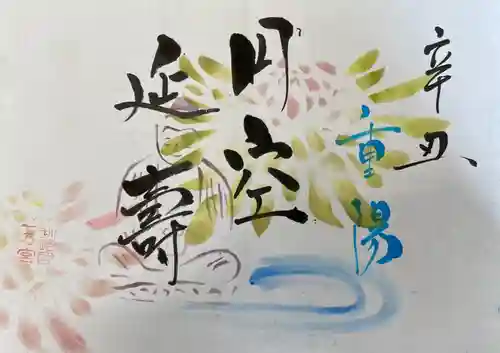 辛丑
重陽
円空
延壽